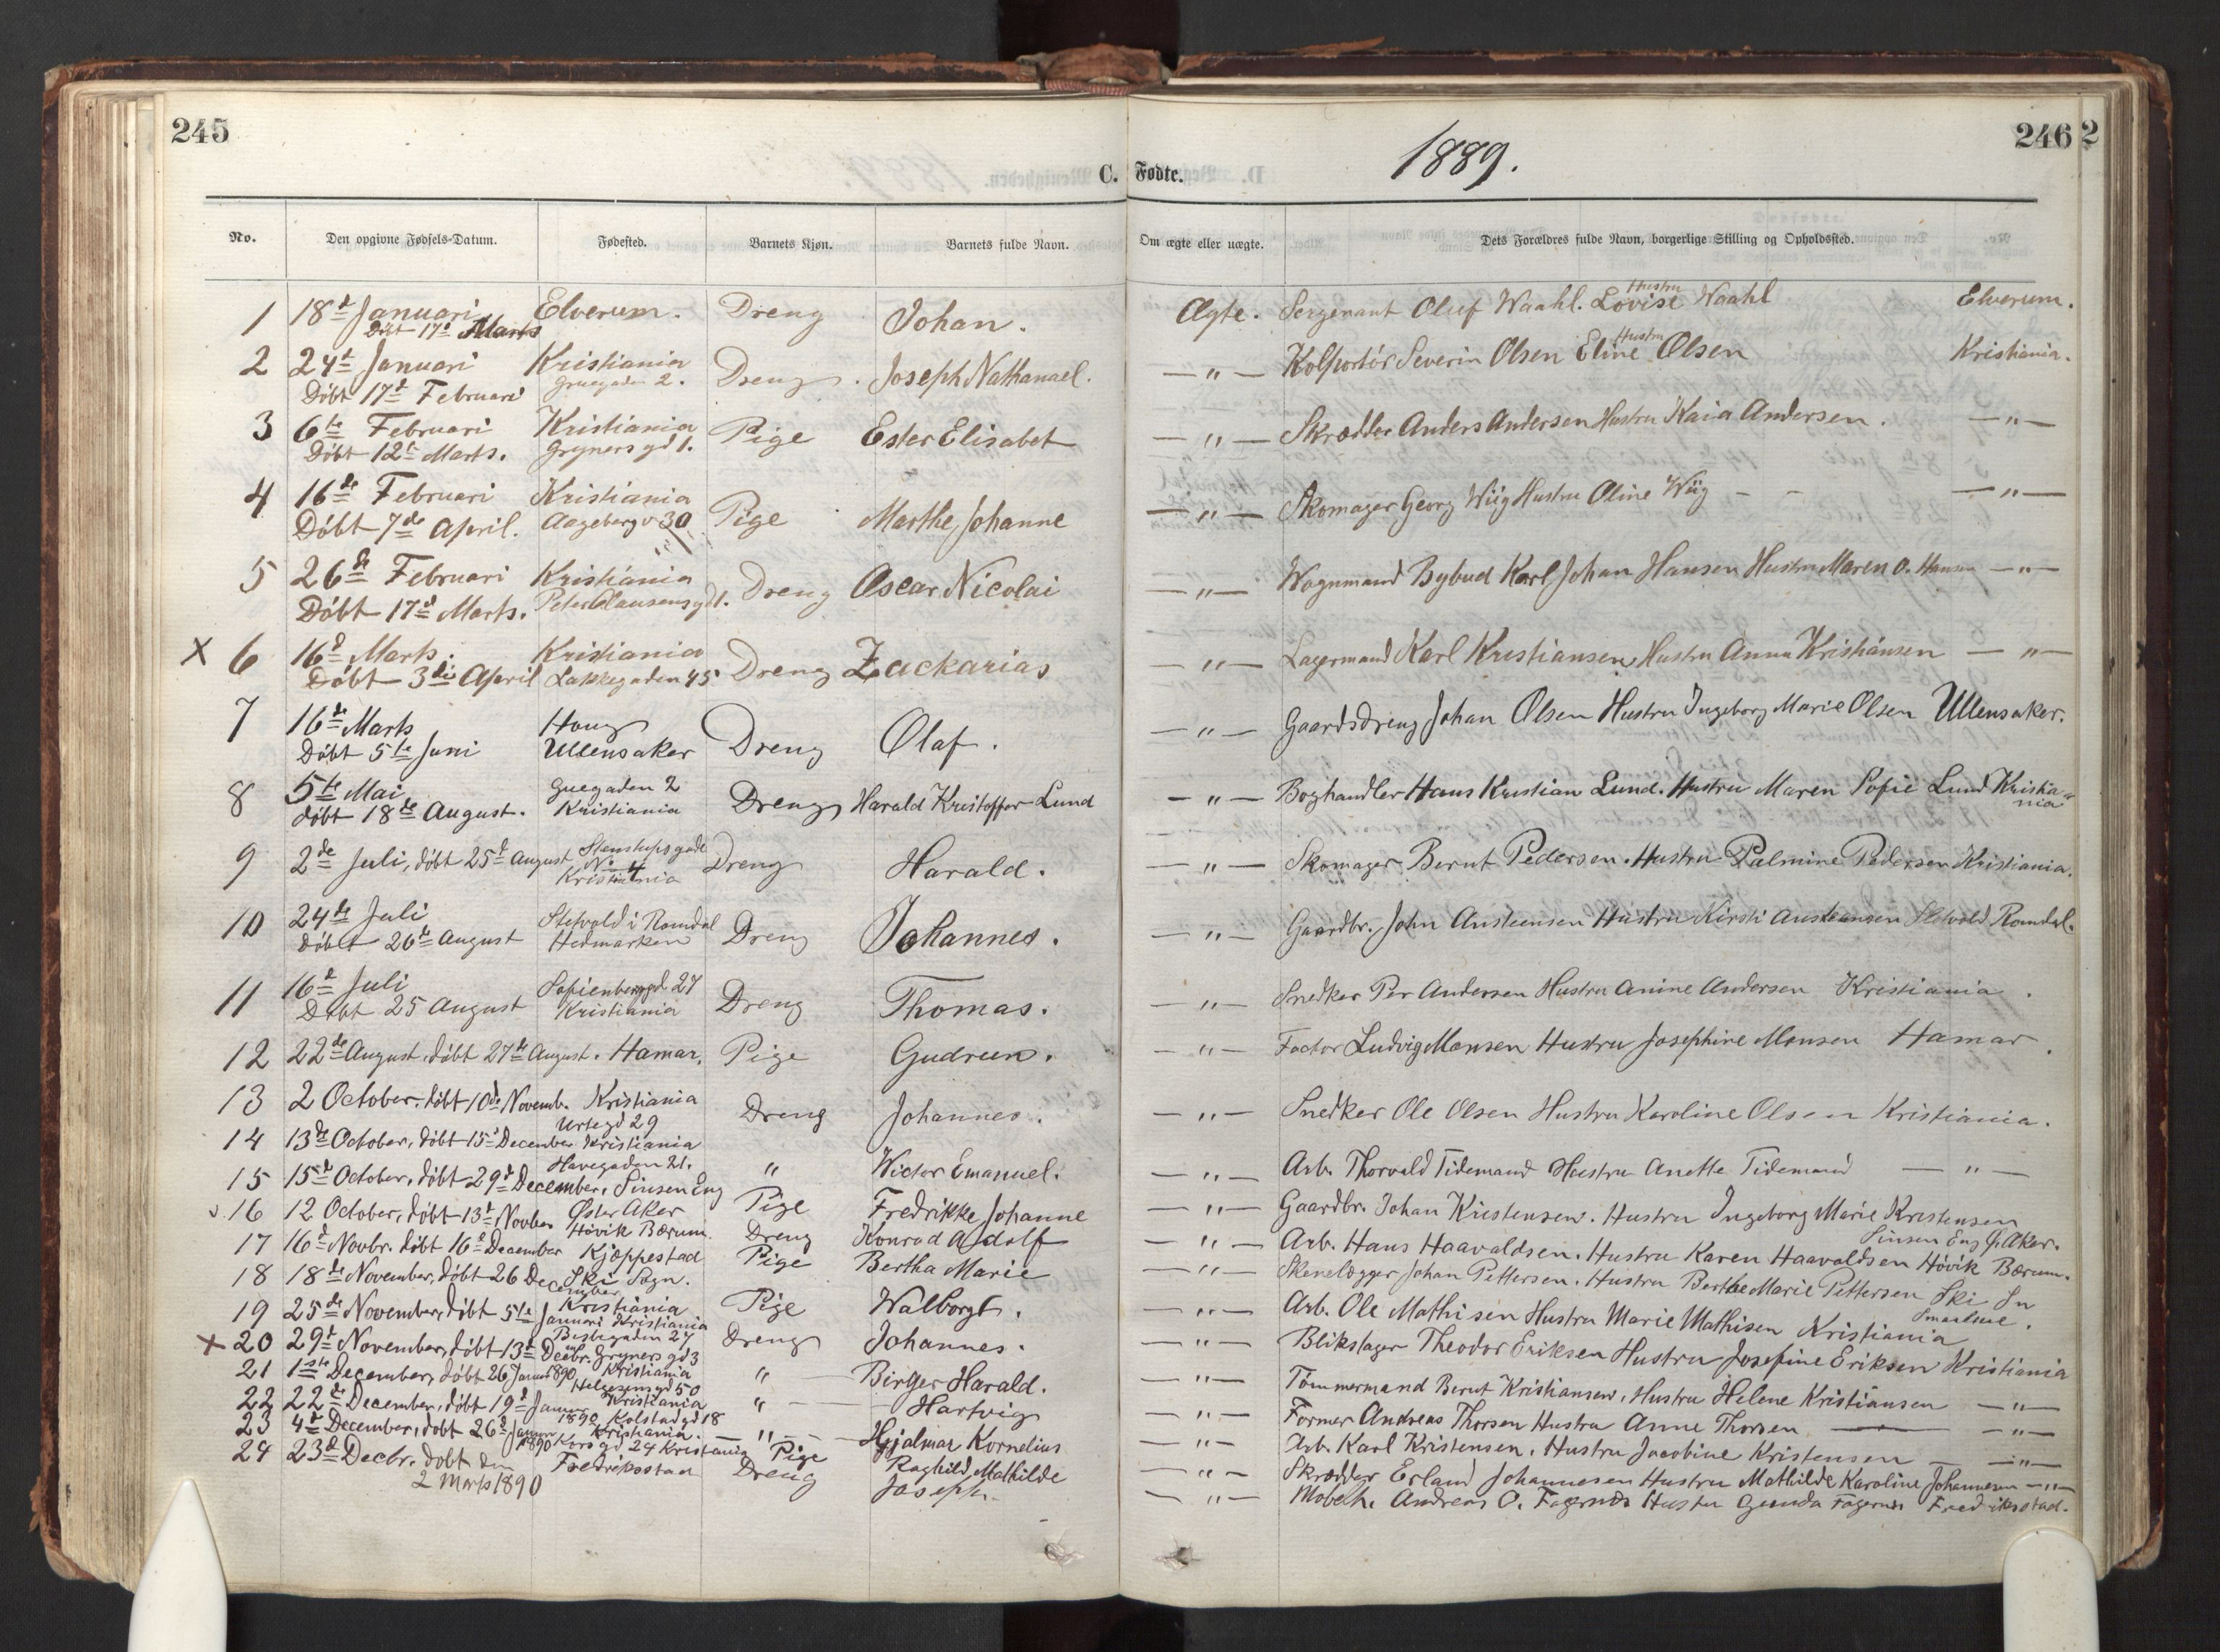 245
246
2
C. Fødte.
1889.
No.
Den opgivne Fødsels-Datum.
Fødested.
Barnets Kjøn.
Barnets fulde Navn.
Om ægte eller uægte.
Dets Forældres fulde Navn, borgerlige Stilling og Opholdssted.
1 18d Januari Elverum. Dreng Johan. Ægte. Sergenant Oluf Waahl. Hustru Lovise Waahl Elverum.
Døbt 17d Marts
2 24d Januari Kristiania Dreng. Joseph Nathanael. — " — Kolportør Severin Olsen Hustru Eline Olsen Kristiania.
Døbt 17d Februari Gruegaden 2.
3 6te Februari Kristiania Pige Ester Elisabet — " — Skrædder Anders Andersen Hustru Kaia Andersen. — " —
Døbt 12te Marts. Gryners gd 1.
4 16de Februari Kristiania Pige Marthe Johanne — " — Skomager Georg Wiig Hustru Oline Wiig - - — " —
Døbt 7de April. Aageberg v 30
5 26de Februari Kristiania Dreng Oscar Nicolai — " — Wognmand Bybud Karl Johan Hansen Hustru Maren O. Hansen — " —
Døbt 17d Marts. Peter Clausens gd 1.
x 6 16d Marts. Kristiania Dreng Zackarias — " — Lagermand Karl Kristiansen Hustru Anna Kristiansen — " —
Døbt 3die April Lakkegaden 45
7 16de Marts Haug Dreng Olaf. — " — Gaardsdreng Johan Olsen Hustru Ingeborg Marie Olsen Ullensaker.
Døbt 5te Juni Ullensaker
8 5te Mai Guegaden 2 Dreng Harald Kristoffer Lund — " — Boghandler Hans Kristian Lund. Hustru Maren Sofie Lund Kristia-
døbt 18de August. Kristiania nia
9 2de Juli, døbt 25d August Stenstupsgade Dreng Harald. — " — Skomager Bernt Pedersen. Hustru Palmine Pedersen Kristiania.
No 4
Kristiania
10 24de Juli Stetvold i Romdal Dreng Johannes. — " — Gaardbr. John Austeensen Hustru Kirsti Austeensen Stetvold Romdal.
Døbt 26de August Hedmarken
11 16d Juli Sofienberggd. 27 Dreng Thomas. — " — Snedker Per Andersen Hustru Anine Andersen Kristiania.
Døbt 25 August Kristiania
12 22de August, døbt 27de August. Hamar. Pige Gudrun. — " — Factor Ludvig Monsen Hustru Josephine Monsen Hamar.
13 2 October. døbt 10de Novemb. Kristiania Dreng Johannes. — " — Snedker Ole Olsen Hustru Karoline Olsen Kristiania.
Urtegd 29
14 13de October, døbt 15d December Kristiania " Wictor Emanuel. — " — Arb. Thorvald Tidemand Hustru Anette Tidemand — " —
Havegaden 21.
15 15d October, døbt 29d December. Sinsen Eng Pige Fredrikke Johanne — " — Gaardbr. Johan Kristensen. Hustru Ingeborg Marie Kristensen
Øster Aker Sinsen Eng Ø. Aker.
16 12 October, døbt 13d Novber Høvik Bærum. Dreng Konrad Adolf — " — Arb. Hans Haavaldsen. Hustru Karen Haavaldsen Høvik Bærum.
17 16d Novbr. døbt 16d December Kjæppestad Pige Bertha Marie — " — Skenelægger Johan Pettersen. Hustru Berthe Marie Pettersen Ski Sn
Ski Sogn. Smaalene.
18 18de November, døbt 26 December Kristiania Pige Walborg. — " — Arb. Ole Mathisen Hustru Marie Mathisen Kristiania
19 25de November, døbt 5te Januari Kristiania Dreng Johannes. — " — Blikslager Theodor Eriksen Hustru Josefine Eriksen Kristiania
Beslegaden 27
x 20 29d November, døbt 13d Decbr. Gryners gd 3 " Birger Harald. — " — Tømmermand Bernt Kristiansen. Hustru Helene Kristiansen — " —
Kristiania
21 1ste December, døbt 26 Januar 1890 Helgesens gd 50 " Hartvig — " — Former Andreas Thorsen Hustru Anne Thorsen — " —
Kristiania
22 22de December, døbt 19d Januar 1890 Kolstad gd 18 — " — Hjalmar Kornelius — " — Arb. Karl Kristensen. Hustru Jacobine Kristensen — " —
Kristiania.
23 4de December, døbt 26d Januar 1890 Kors gd 24 Kristiania Pige Raghild Mathilde — " — Skrædder Erland Johannesen Hustru Mathilde Karoline Johannesen — " —
24 23d Decbr. døbt den Fredriksstad Dreng Joseph. — " — Andreas O. Fagernes Hustru Gunda Fagernes Fredriksstad.
2 Marts 1890